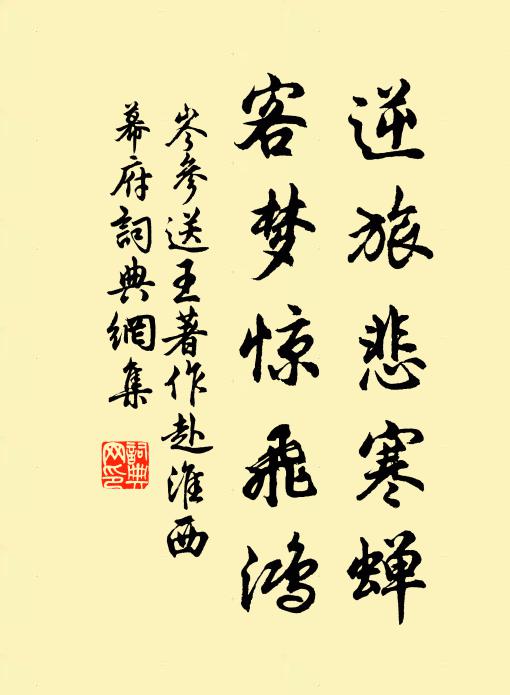 逆旅悲寒蝉
客梦惊飛鸿
岑參送王著作赴淮西
幕府詞典網集
詞典网印